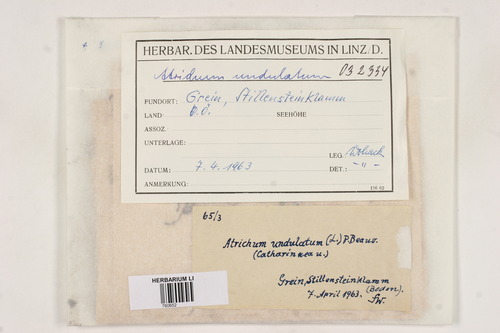 HERBAR. DES LANDESMUSEUMS IN LINZ/D.
Atrichum undulatum 032334
FUNDORT: Grein, Stillensteinklamm
LAND: O.Ö. SEEHÖHE
ASSOZ.
UNTERLAGE:
LEG.
DATUM: 7.4.1963 DET.: - " -
ANMERKUNG:
65/3
Atrichum undulatum (L.) P. Beauv.
(Catharinaea u.)
Grein, Stillensteinklamm
(Boden).
7. April 1963.
HERBARIUM LI